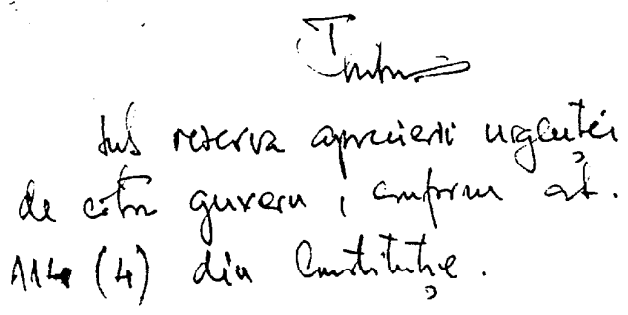 sub rezerva aprecierii urgenței
de către guvern, conform art.
114 (4) din Constituție.